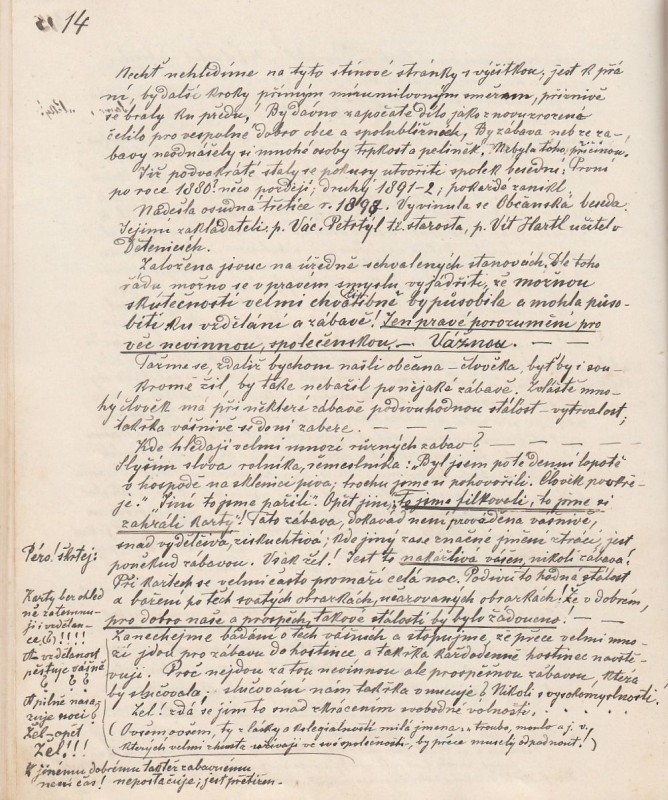 14
Nechť nehledíme na tyto stínové stránky s výčitkou; jest k přá
ní, by další kroky přímým mírumilovným směrem, příznivě
se braly ku předu! By dávno započaté dílo jako znovuzrozené
čelilo pro vespolné dobro obce a spolubližních. By zábava neb ze zá-
bavy neodnášely si mnohé osoby trpkosta pelíněk. Nebylo toho příčinou.
Již podvakráte staly se pokusy utvořiti spolek besední: První
po roce 1880? něco později; druhý 1891-2; pokaždé zanikl.
Nadešla osudná třetice r. 1898. Vyvinula se Občanská beseda.
Jejími zakladateli: p. Vác. Petrtýl tž. starosta, p. Vít Hartl učitel v
Dětenicích.
Založena jsouc na úředně schvalených stanovách. Dle toho
řádu možno se v pravém smyslu vyjádřiti, že možnou
skutečností velmi chvalitebně by působila a mohla půso-
biti ku vzdělání a zábavě! Jen pravé porozumění pro
věc nevinnou, společenskou, – Vážnou. – –
Tažme se, zdaliž bychom našli občana – člověka, byť by i sou-
kromě žil, by také nebažil po nějaká zábavě. Zvláště mno-
hý člověk má při některé zábavě podivuhodnou stálost – vytrvalost;
takřka vášnivě se do ní zabere. – – – –
Kde hledají velmi mnozí různých zábav? – – – –
Slyším slova rolníka, řemeslníka: „Byl jsem po té denní lopotě
v hospodě na sklenici piva; trochu jsme si pohovořili. Člověk pookře-
je." Jiní to jsme pařili". Opět jiní, "to jsme filkovali, to jsme si
zahráli karty." Tato zábava, dokavád není prováděna vášnivě,
snad výdělečně, ziskuchtivě; kde jiný zase značné jmění ztrácí, jest
poněkud zábavou. Však žel! Jest to nakažlivá vášeň, nikoli zábava!
Při kartech se velmi často promaří celá noc. Podivu to hodná stálost
a boření po těch svatých obrázkách, učarovaných obrázkách! Že v dobrém,
pro dobro naše a prospěch, takové stálosti by bylo žádoucno! – –
Zanechejme bádání o těch vášních a stopujme, že práce velmi mno-
zí jdou pro zábavu do hostince a takřka každodenně hostinec navště-
vuje. Proč nejdou za tou nevinnou ale prospěšnou zábavou, která
by slučovala – slučování nám takřka vnucuje? Nikoli s vysokomyslností!
Žel! zdá se jim to snad zkrácením svobodné volnosti. . . . . . .
(Ovšem ovšem, ty z lásky a kolegiálnosti milá jména: „troubo, moulo a j. v.
kterých velmi zhusta užívají ve své společnosti, by práce musely odpadnout!)
Péro! škrtej:
Karty bez ohled
ně zatemnu-
jí i vzdělan-
ce (?) !!!!
A vzdělanost
pěstuje vášně
? ! ? ?
A pilně nasa-
zuje noci?
Žel – opět
Žel!!!
K jinému dobrému taktéž zábavnému
není čas! nepostačuje; jest přetížen.